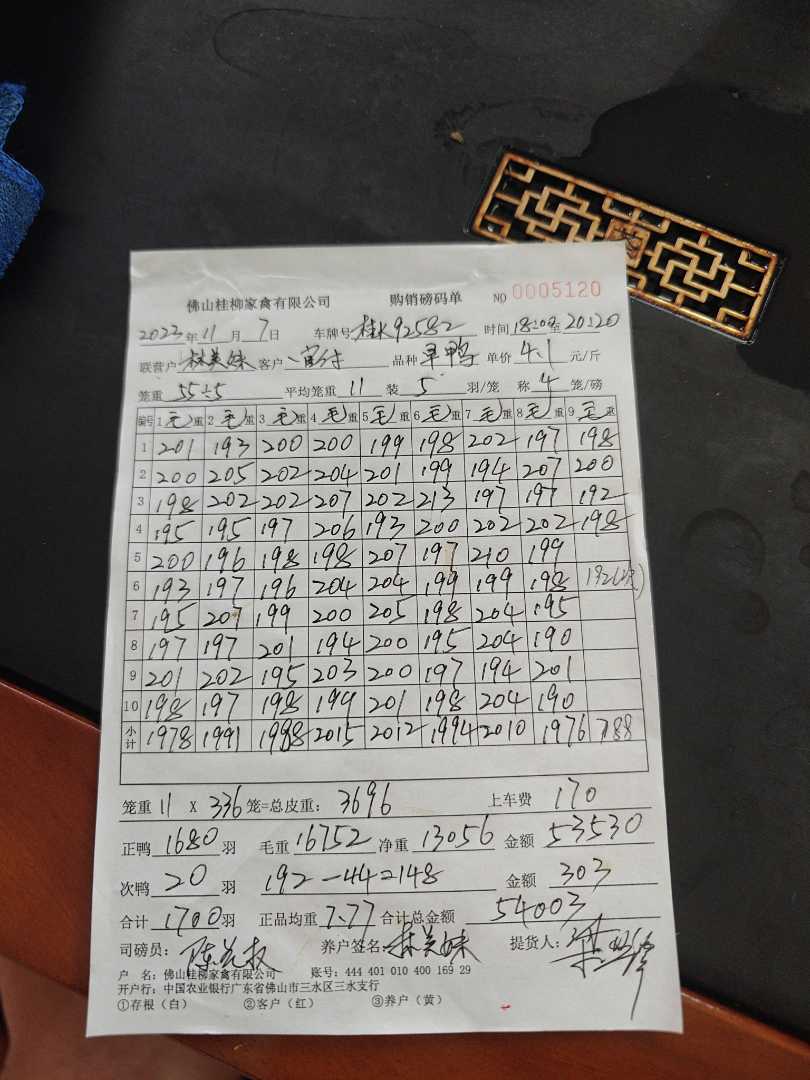 佛山桂柳家禽有限公司 购销磅码单 NO 0005120
2023年11月7日 车牌号 桂K92582 时间 18:20至20:20
联营户 林美妹 客户 品种 旱鸭 单价 4.1 元/斤
笼重 55÷5 平均笼重 11 装 5 羽/笼 称 4 笼/磅
编号 1毛重 2毛重 3毛重 4毛重 5毛重 6毛重 7毛重 8毛重 9毛重
1 201 193 200 200 199 198 202 197 198
2 200 205 202 204 201 199 194 207 200
3 198 202 202 207 202 213 197 197 192
4 195 195 197 206 193 200 202 202 198
5 200 196 198 198 207 197 210 199
6 193 197 196 204 204 199 199 198 192(次)
7 195 207 199 200 205 198 204 195
8 197 197 201 194 200 195 204 190
9 201 202 195 203 200 197 194 201
10 198 197 198 199 201 198 204 190
小计 1978 1991 1988 2015 2012 1994 2010 1976 788
笼重 11 X 336 笼=总皮重: 3696 上车费 170
正鸭 1680 羽 毛重 16752 净重 13056 金额 53530
次鸭 20 羽 192-44=148 金额 303
合计 1700 羽 正品均重 7.77 合计总金额 54003
司磅员: 养户签名: 林美妹 提货人:
户 名: 佛山桂柳家禽有限公司 账号: 444 401 010 400 169 29
开户行: 中国农业银行广东省佛山市三水区三水支行
①存根(白) ②客户(红) ③养户(黄)